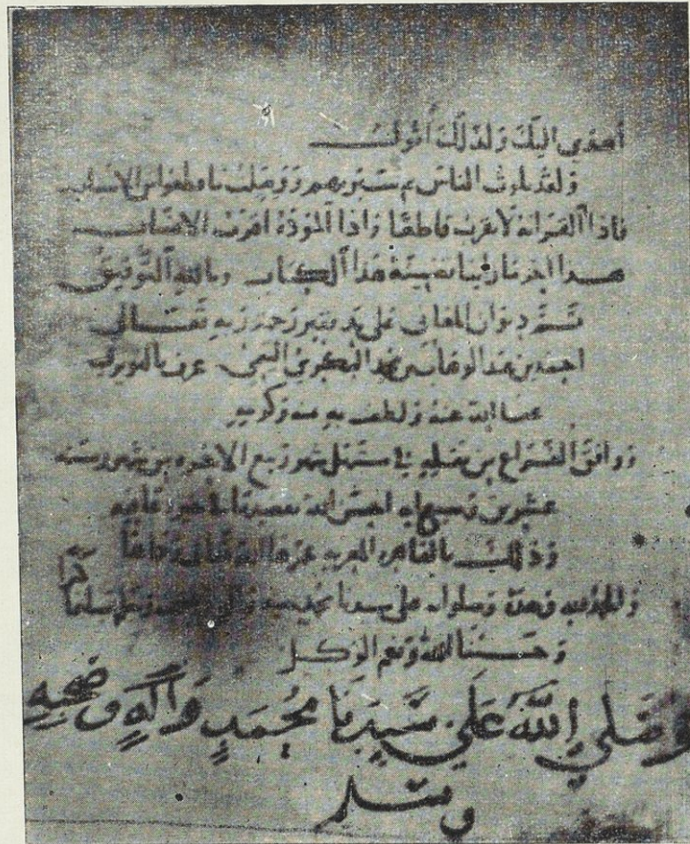 أهدي إليك ولذلك أقول
ولقد بلوت الناس ثم سبرتهم ووصلت ما قطعوا من الأسباب
فإذا القرابة لا تقرب قاطعا وإذا المودة أقرب الأنساب
هذا آخر ما هذا الكتاب وبالله التوفيق
تم ديوان المعاني على يد فقير رحمة ربه تعالى
احمد بن عبد الوهاب بن محمد البكري التيمي عرف بالنويري
عفا الله عنه ولطف به بمنه وكرمه
ووافق الفراغ من في مستهل شهر ربيع الآخر من شهور سنة
عشرين وسبعمائة أحسن الله
وذلك بالقاهرة المعزية عمرها الله تعالى
والحمد لله وحده وصلواته على سيدنا محمد وسلم تسليما
كثيرا
وحسبنا الله ونعم الوكيل
وصلي الله علي سيدنا محمد وآله وصحبه
وسلم